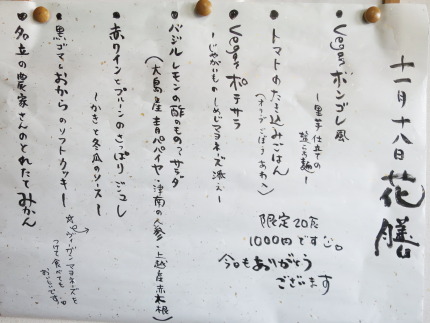 十一月十八日 花膳
● Vegan ボンゴレ風
ー里芋仕立ての
ー
● トマトのたき込みごはん
(オリーブ・ごぼう・あわ入)
● Vegan ポテサラ
ーじゃがいものしめじマヨネーズ添えー
● バジルレモンの酢のもの
サラダ
(大島産青パパイヤ・津南の人参・上越産赤木根)
● 赤ワインとプルーンのさっぱりジュレ
ーかきと冬瓜のソースー
● 黒ゴマとおからのソフトクッキー
☆ヴィーガンマヨネーズを
つけて食べても
おいしいです。
● 足立の農家さんのとれたてみかん
限定20食
1000円です
今日もありがとう
ございます